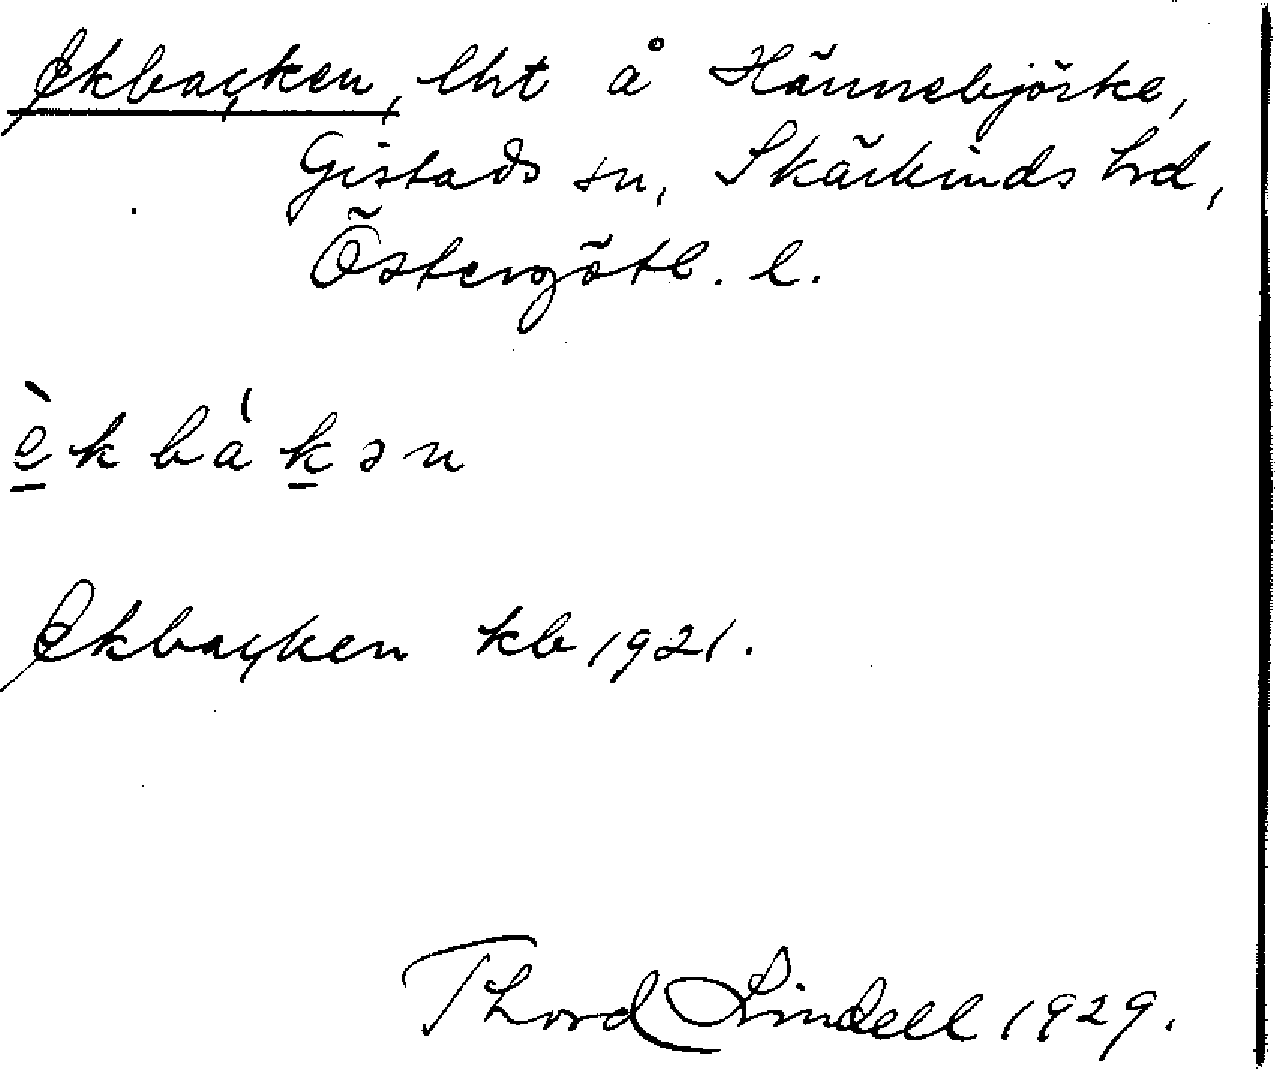 Ekbacken, lht å Hännebjörke,
Gistads sn, Skärkinds hd,
Östergötl. l.
èkbákən
Ekbacken kb 1921.
Thord Lindell 1929.